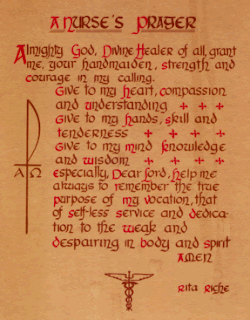 A NURSE'S PRAYER
Almighty God, Divine Healer of all, grant
me, your handmaiden, strength and
courage in my calling.
Give to my heart, compassion
and understanding + + +
Give to my hands, skill and
tenderness + + + +
Give to my mind knowledge
and wisdom + + + +
Α Ω
especially, Dear Lord, help me
always to remember the true
purpose of my vocation, that
of self-less service and dedica-
tion to the weak and
despairing in body and spirit
AMEN
Rita Riche